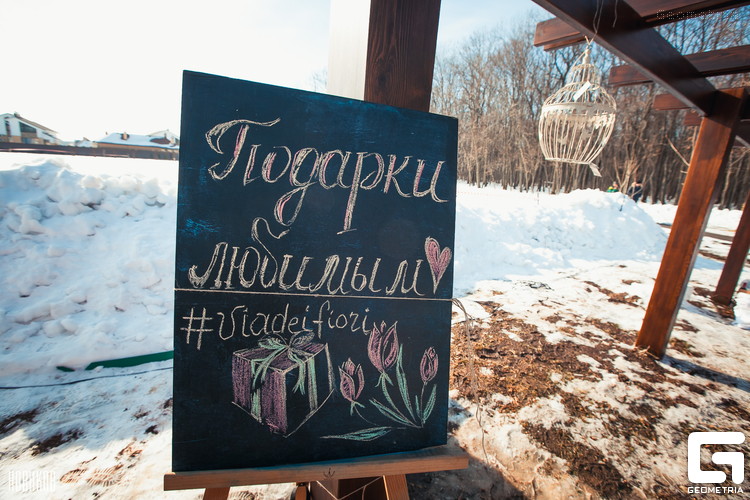 Подарки
любимым
#Viadeifiori
GEOMETRIA